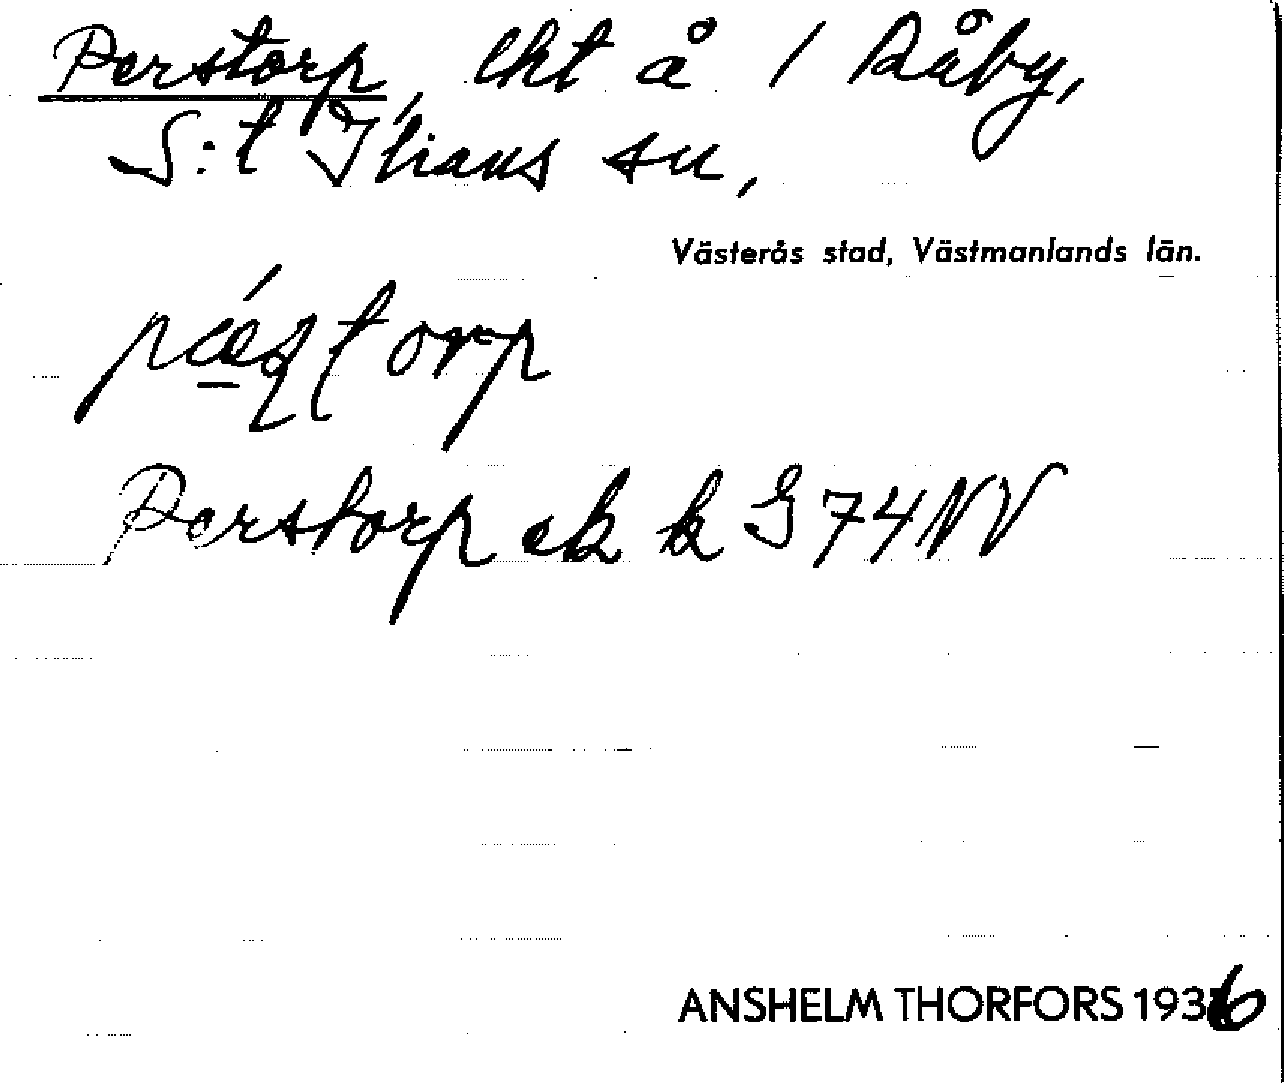 Perstorp, lht å 1 Råby,
S:t Ilians sn,
Västerås stad, Västmanlands län.
Perstorp ek k G 74 NV
ANSHELM THORFORS 1936